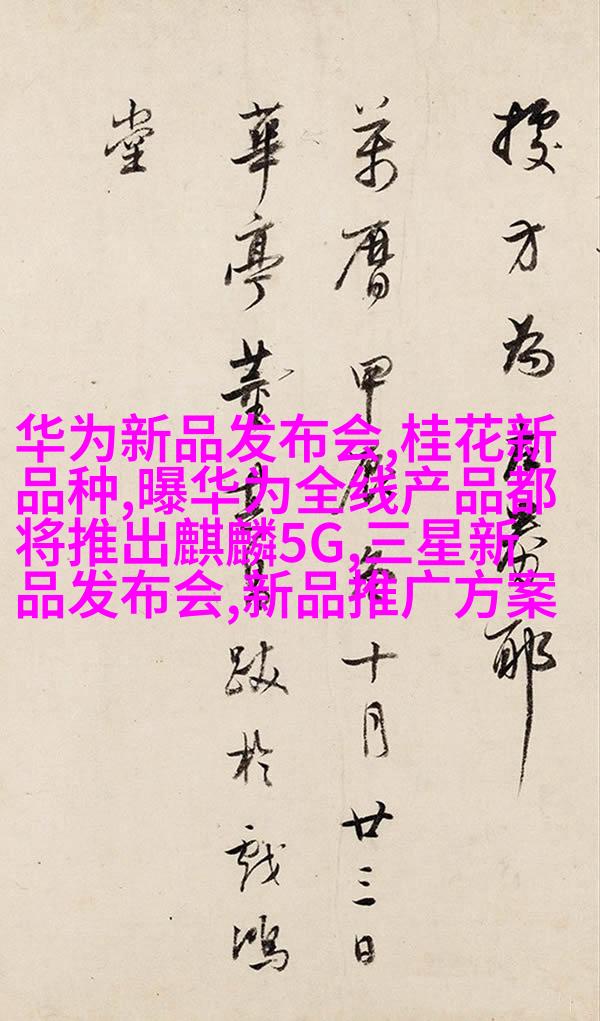 據方為
萬曆甲辰十月廿三日
華亭董其昌跋於戲鴻
堂
华为新品发布会,桂花新
品种,曝华为全线产品都
将推出麒麟5G,三星新
品发布会,新品推广方案